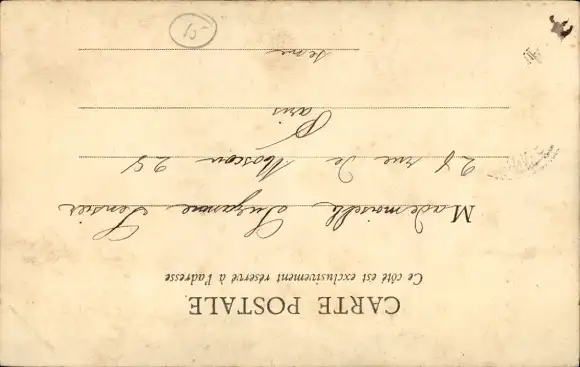 CARTE POSTALE
Ce côté est exclusivement réservé à l'adresse
Mademoiselle Suzanne Sensier
28 rue de Moscou 28
Paris
Seine
15